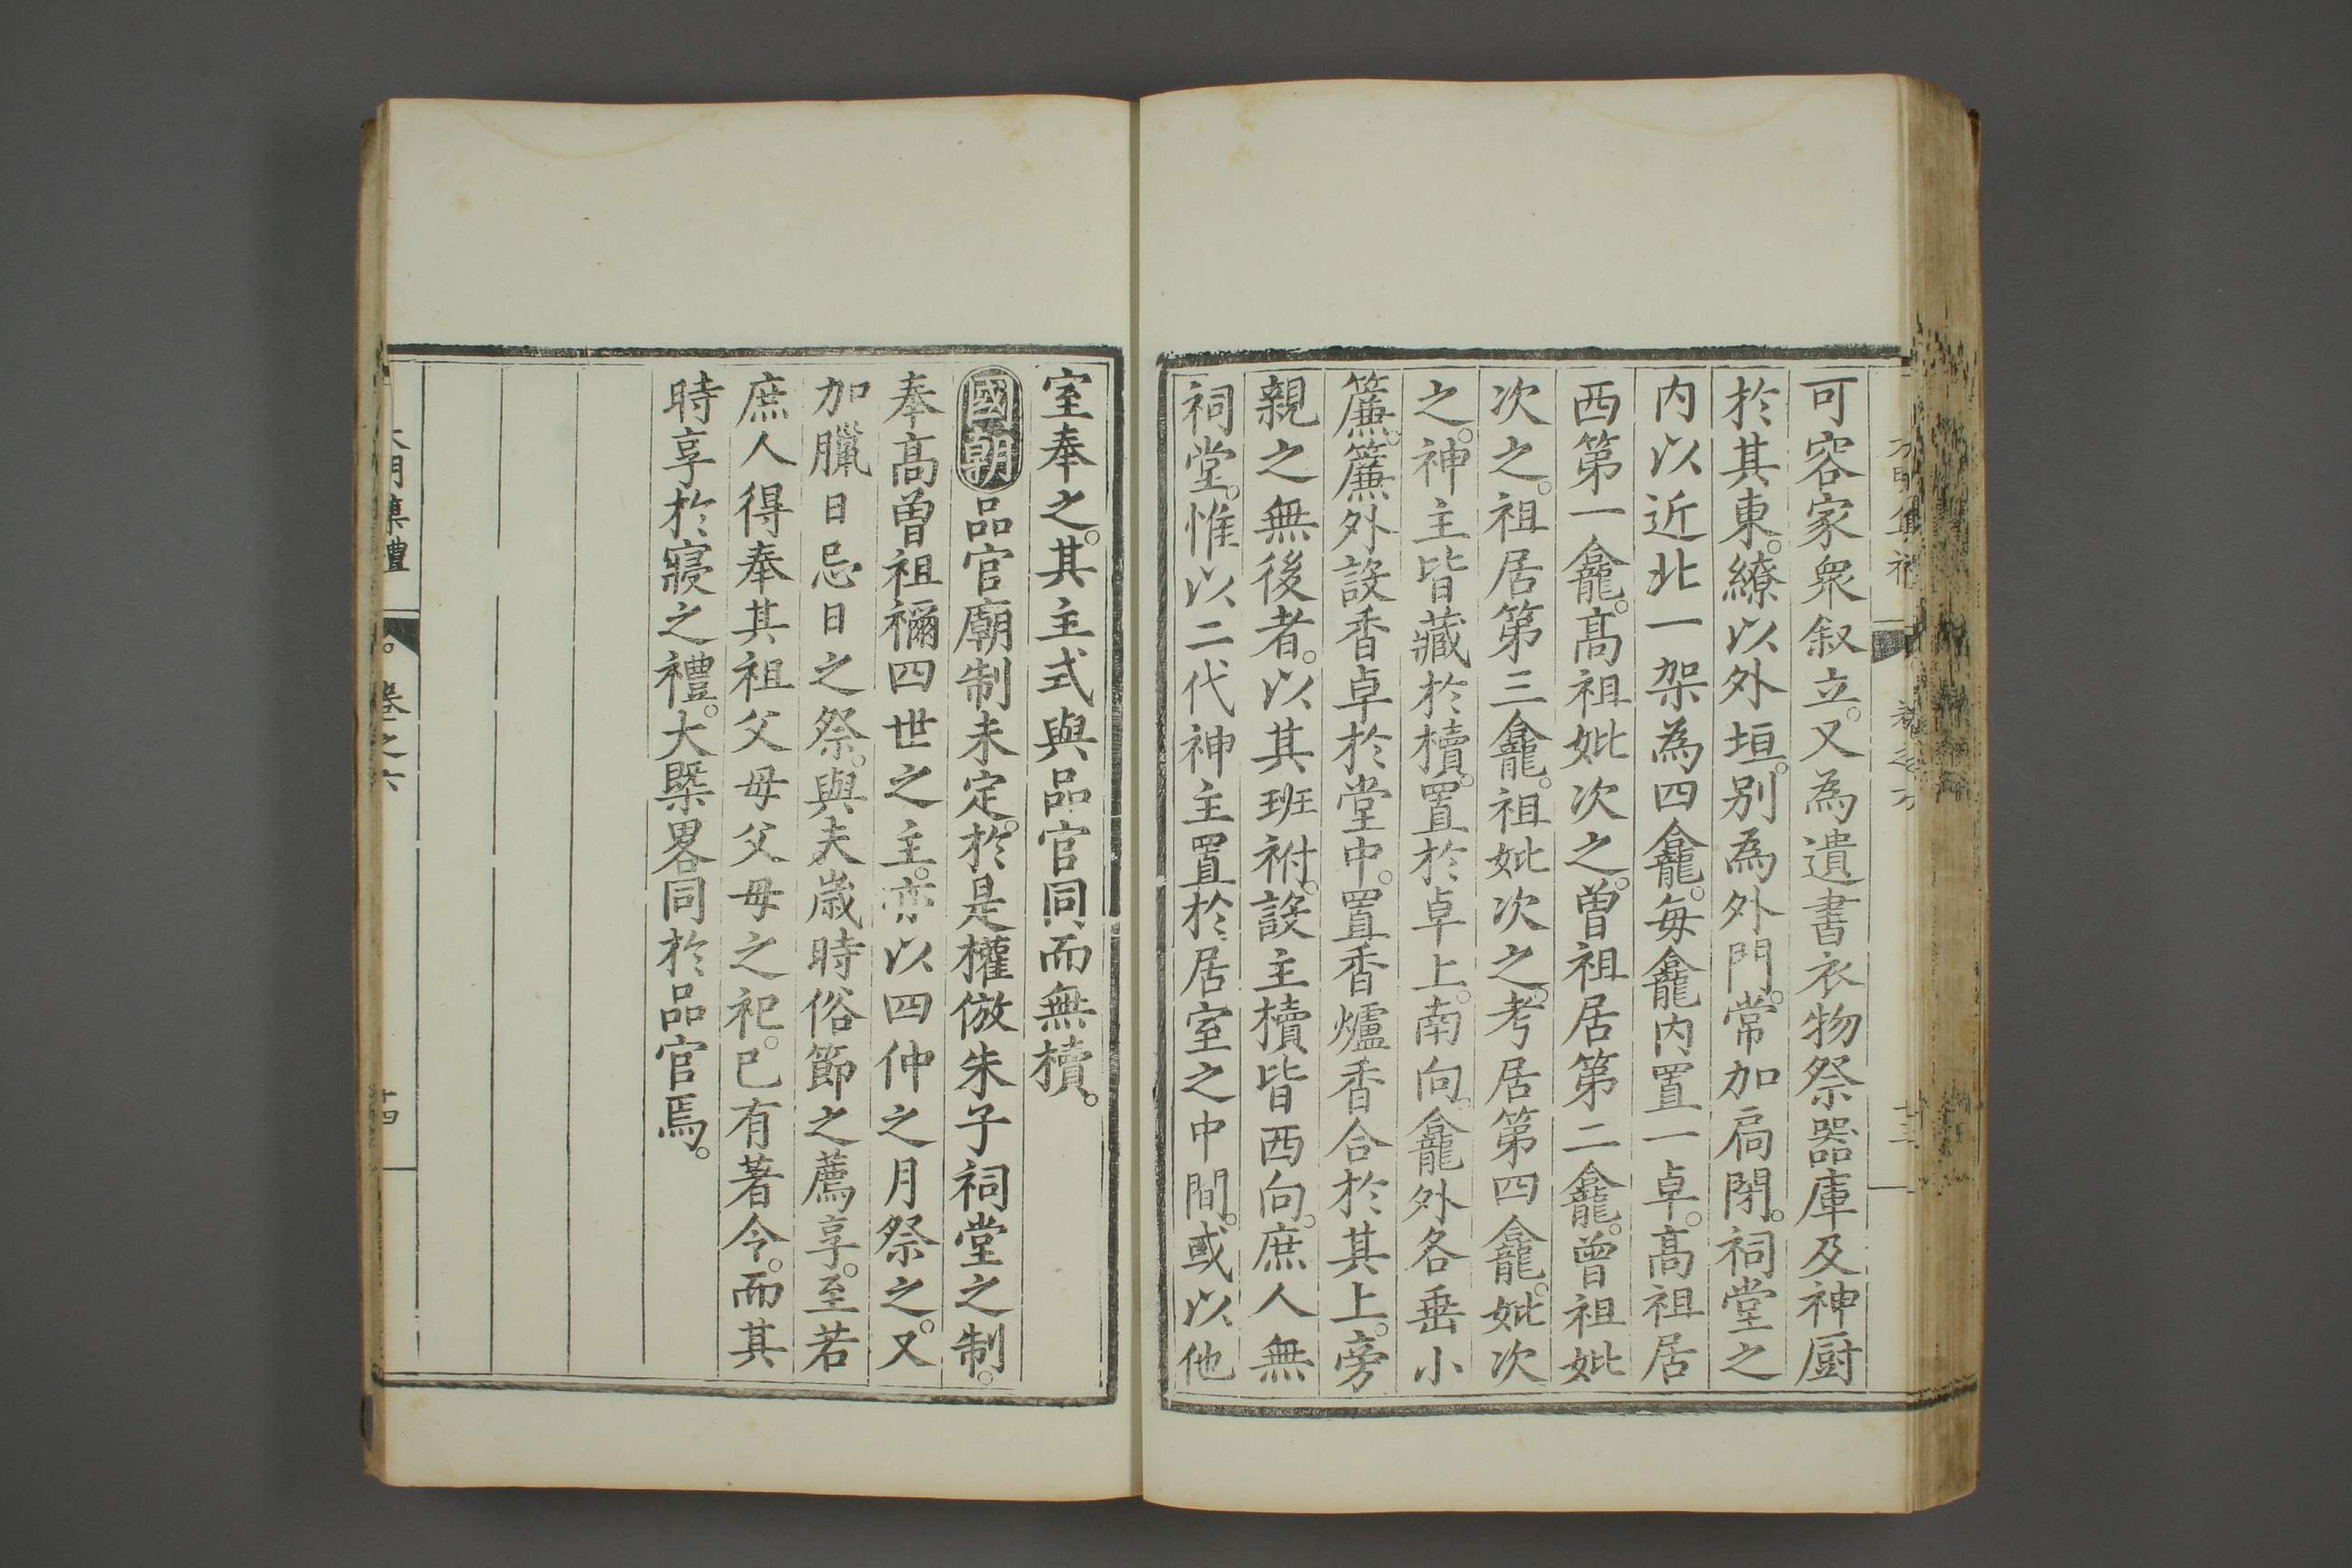 可容家衆叙立。又為遺書衣物祭器庫及神厨
於其東。繚以外垣。别為外門。常加扃閉。祠堂之
内以近北一架為四龕。每龕内置一卓。髙祖居
西第一龕。髙祖妣次之。曽祖居第二龕。曽祖妣
次之。祖居第三龕。祖妣次之。考居第四龕。妣次
之。神主皆藏於櫝。置於卓上。南向。龕外各垂小
簾。簾外設香卓於堂中。置香爐香合於其上。旁
親之無後者。以其班祔。設主櫝皆西向。庶人無
祠堂。惟以二代神主置於居室之中間。或以他
室奉之。其主式與品官同而無櫝。
國朝品官廟制未定。於是權倣朱子祠堂之制。
奉髙曽祖禰四世之主。亦以四仲之月祭之。又
加臘日忌日之祭。與夫歳時俗節之薦享。至若
庶人得奉其祖父母父母之祀。已有著令。而其
時享於寢之禮。大槩畧同於品官焉。
明集禮 卷之六 十四